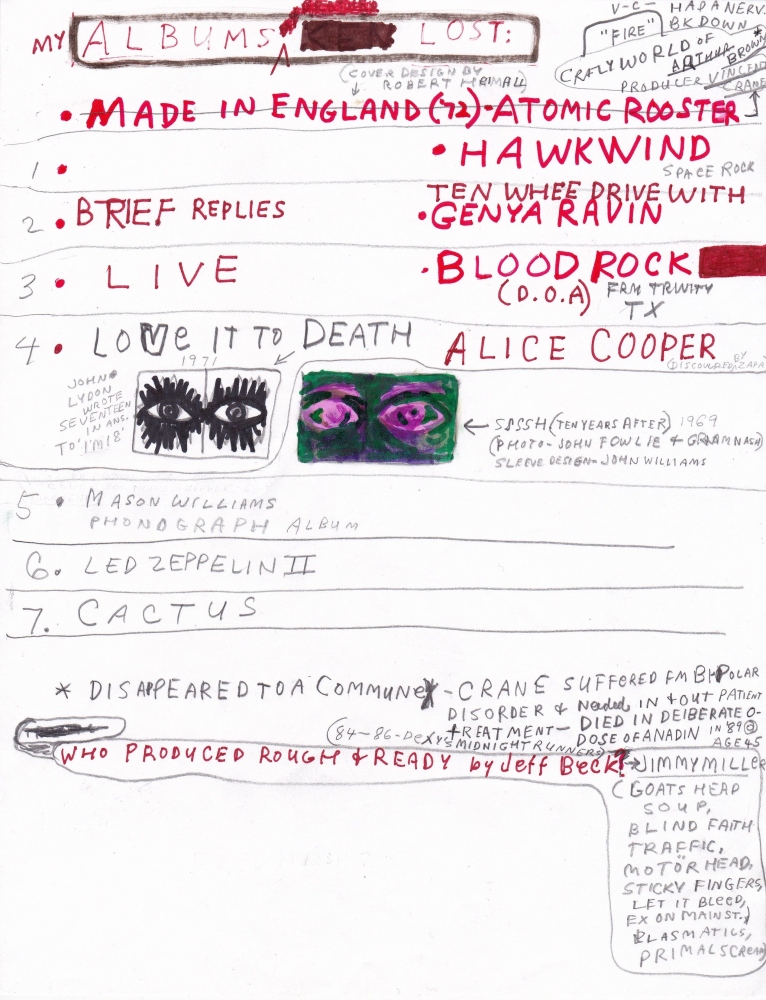 V-C- HAD A NERV.
BKDOWN
"FIRE"
MY ALBUMS LOST:
CRAZYWORLD OF ARTHUR BROWN*
PRODUCER VINCENT CRANE
(COVER DESIGN BY
ROBERT
• MADE IN ENGLAND ('72)-ATOMIC ROOSTER
1 •
• HAWKWIND
SPACE ROCK
2 • BRIEF REPLIES
TEN WHEE DRIVE WITH
• GENYA RAVIN
3 • LIVE
• BLOOD ROCK
(D.O.A) FRM TRINITY
TX
4 • LOVE IT TO DEATH
ALICE COOPER
DISCOVERED BY ZAPA
1971
JOHN
LYDON
WROTE
SEVENTEEN
IN ANS.
TO 'I'M 18'
← SSSSH (TEN YEARS AFTER) 1969
(PHOTO- JOHN FOWLIE & GRAHAM NASH)
SLEEVE DESIGN- JOHN WILLIAMS
5 • MASON WILLIAMS
PHONOGRAPH ALBUM
6. LED ZEPPELIN II
7. CACTUS
* DISAPPEARED TO A COMMUNE - CRANE SUFFERED FM BIPOLAR
DISORDER & Needed IN & OUT PATIENT
TREATMENT- DIED IN DELIBERATE O-
DOSE OF ANADIN IN '89 @
AGE 45
(84-86-Dexys
MIDNIGHT RUNNERS)
WHO PRODUCED ROUGH & READY by Jeff Beck? → JIMMY MILLER
(GOATS HEAD
SOUP,
BLIND FAITH
TRAFFIC,
MOTÖRHEAD,
STICKY FINGERS,
LET IT BLEED,
EX ON MAIN ST.,
PLASMATICS,
PRIMAL SCREAM)